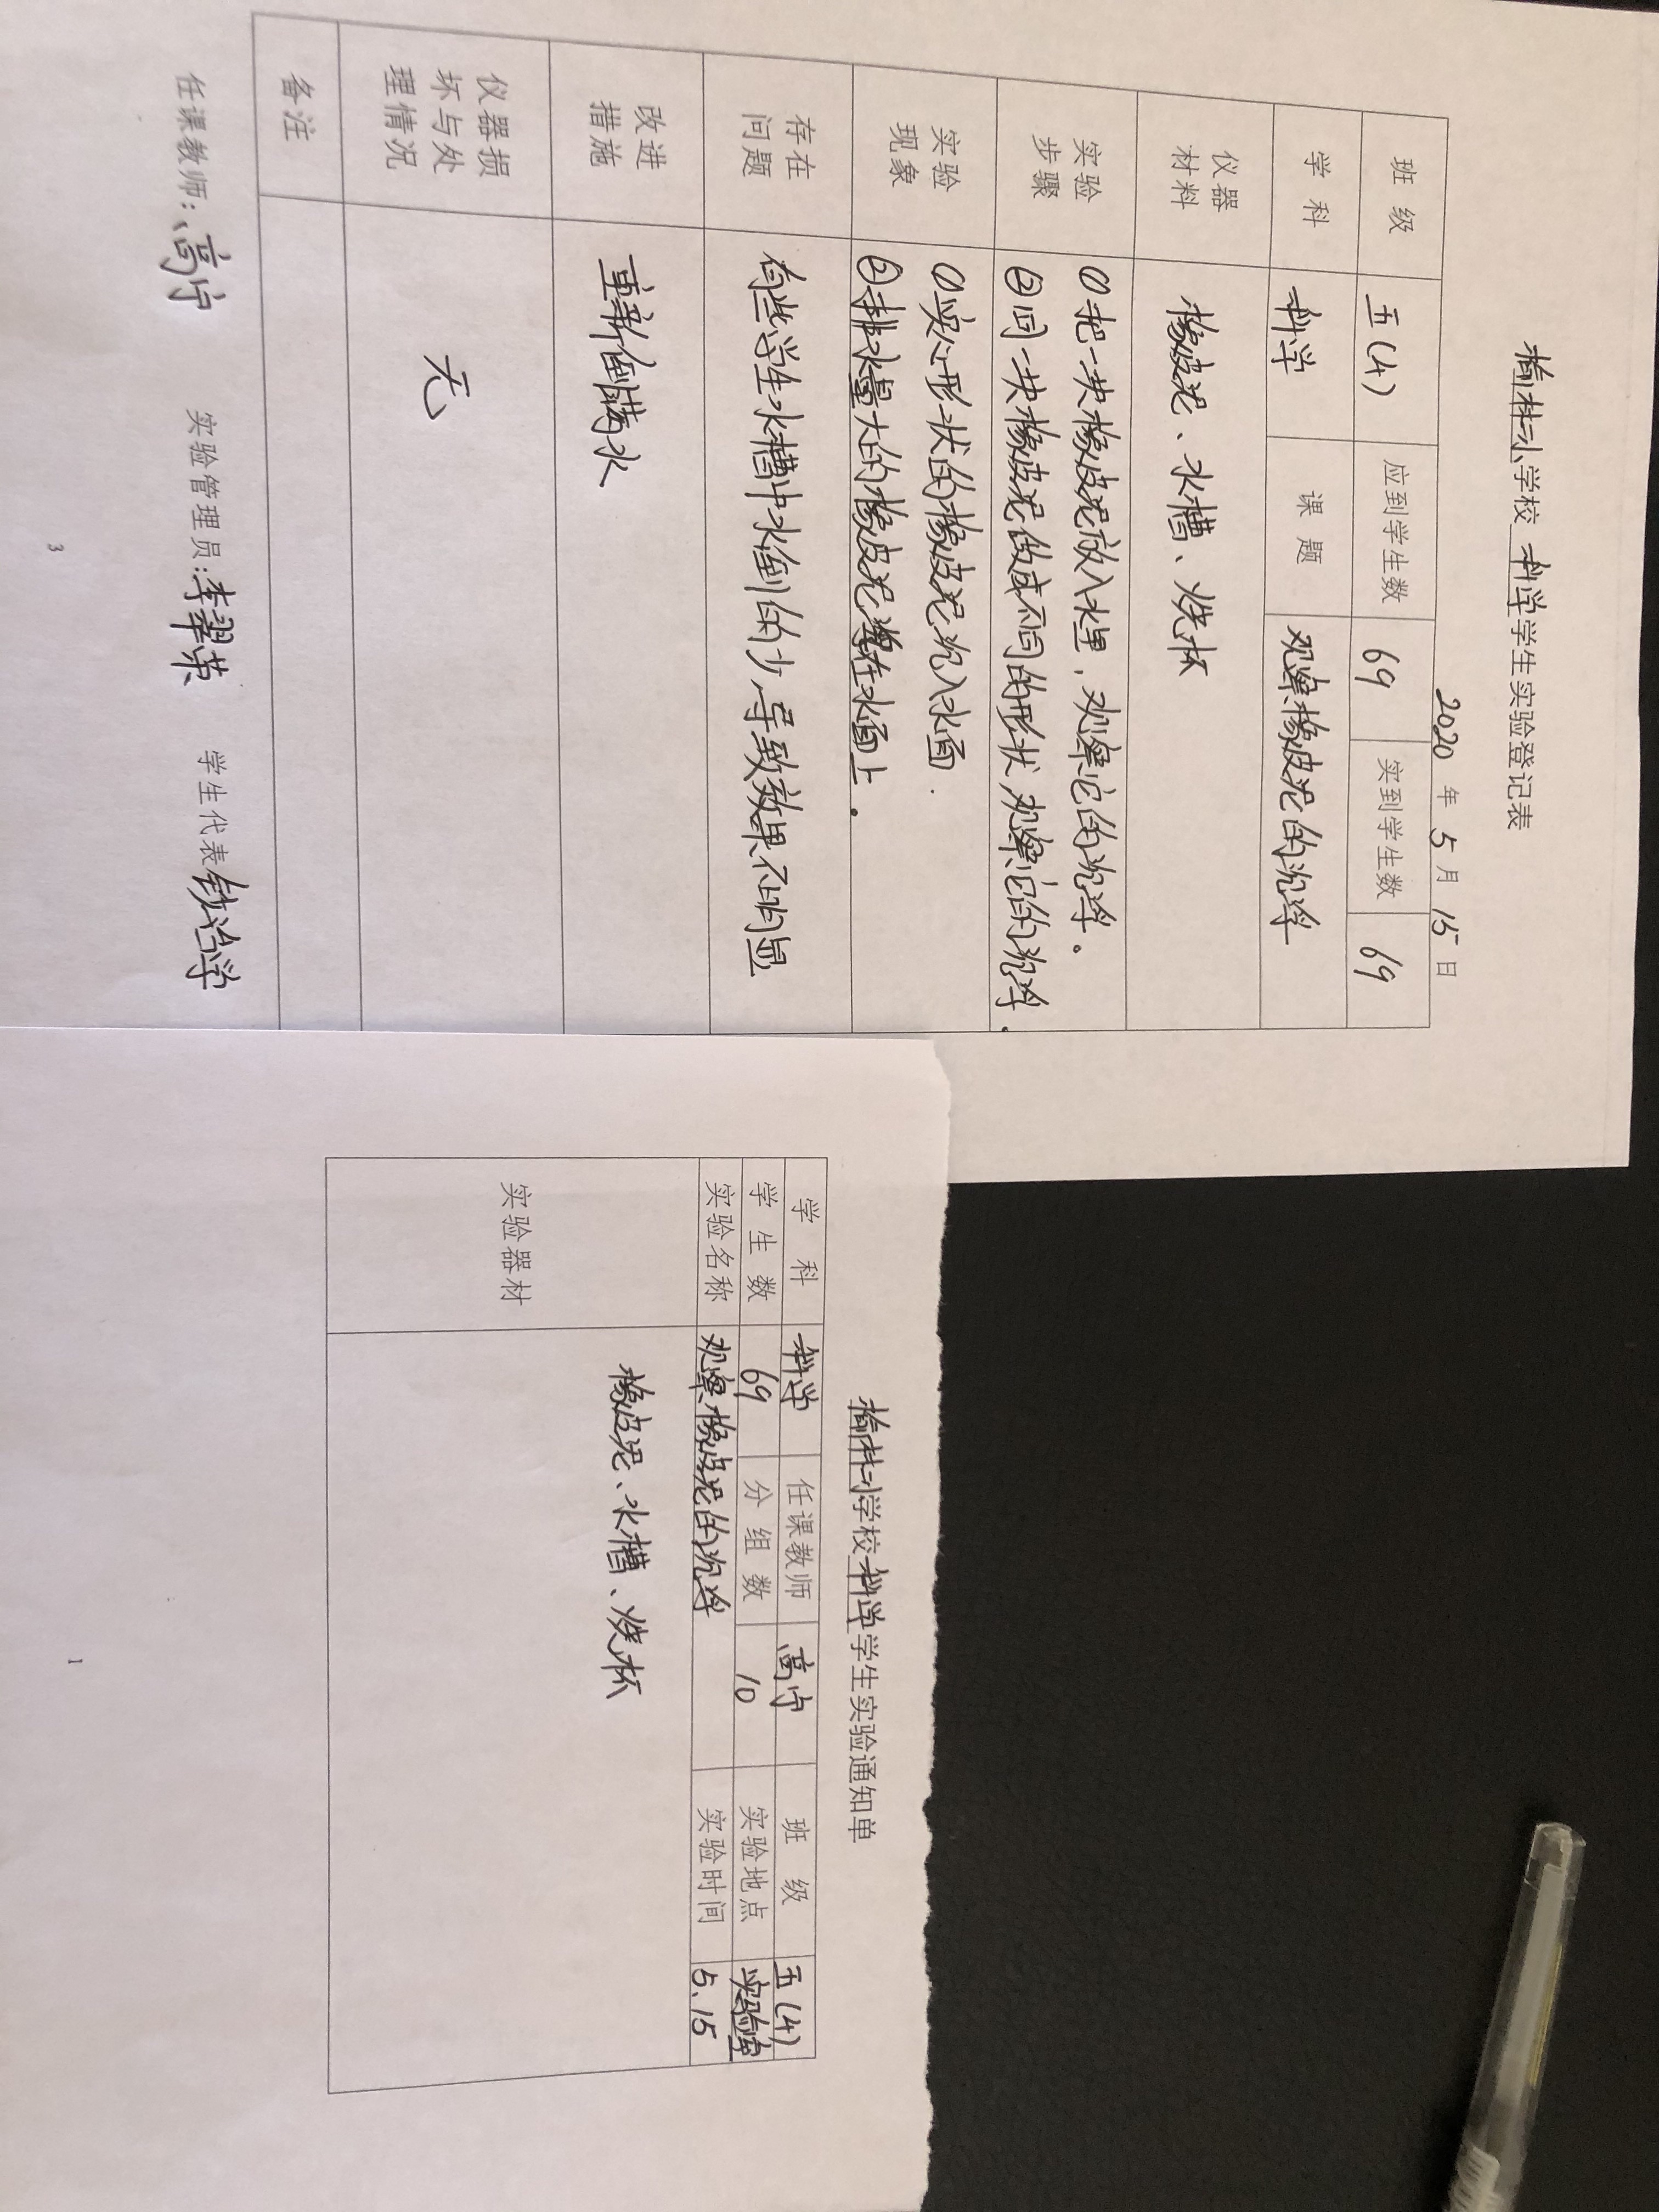 榆林小学校 科学 学生实验登记表
2020 年 5 月 15 日
班 级 五(4) 应到学生数 69 实到学生数 69
学 科 科学 课 题 观察橡皮泥的沉浮
仪器材料 橡皮泥、水槽、烧杯
实验步骤 ①把一块橡皮泥放入水里，观察它的沉浮。
②同一块橡皮泥做成不同的形状，观察它的沉浮.
实验现象 ①实心形状的橡皮泥沉入水面.
②排水量大的橡皮泥浮在水面上。
存在问题 有些学生水槽中水倒的少，导致效果不明显
改进措施 重新倒满水
仪器损坏与处理情况 无
备注
任课教师：高宁 实验管理员：李翠荣 学生代表
3
榆林小学校 科学 学生实验通知单
学 科 科学 任课教师 高宁 班 级 五(4)
学 生 数 69 分 组 数 10 实验地点 实验室
实验名称 观察橡皮泥的沉浮 实验时间 5.15
实验器材 橡皮泥、水槽、烧杯
1